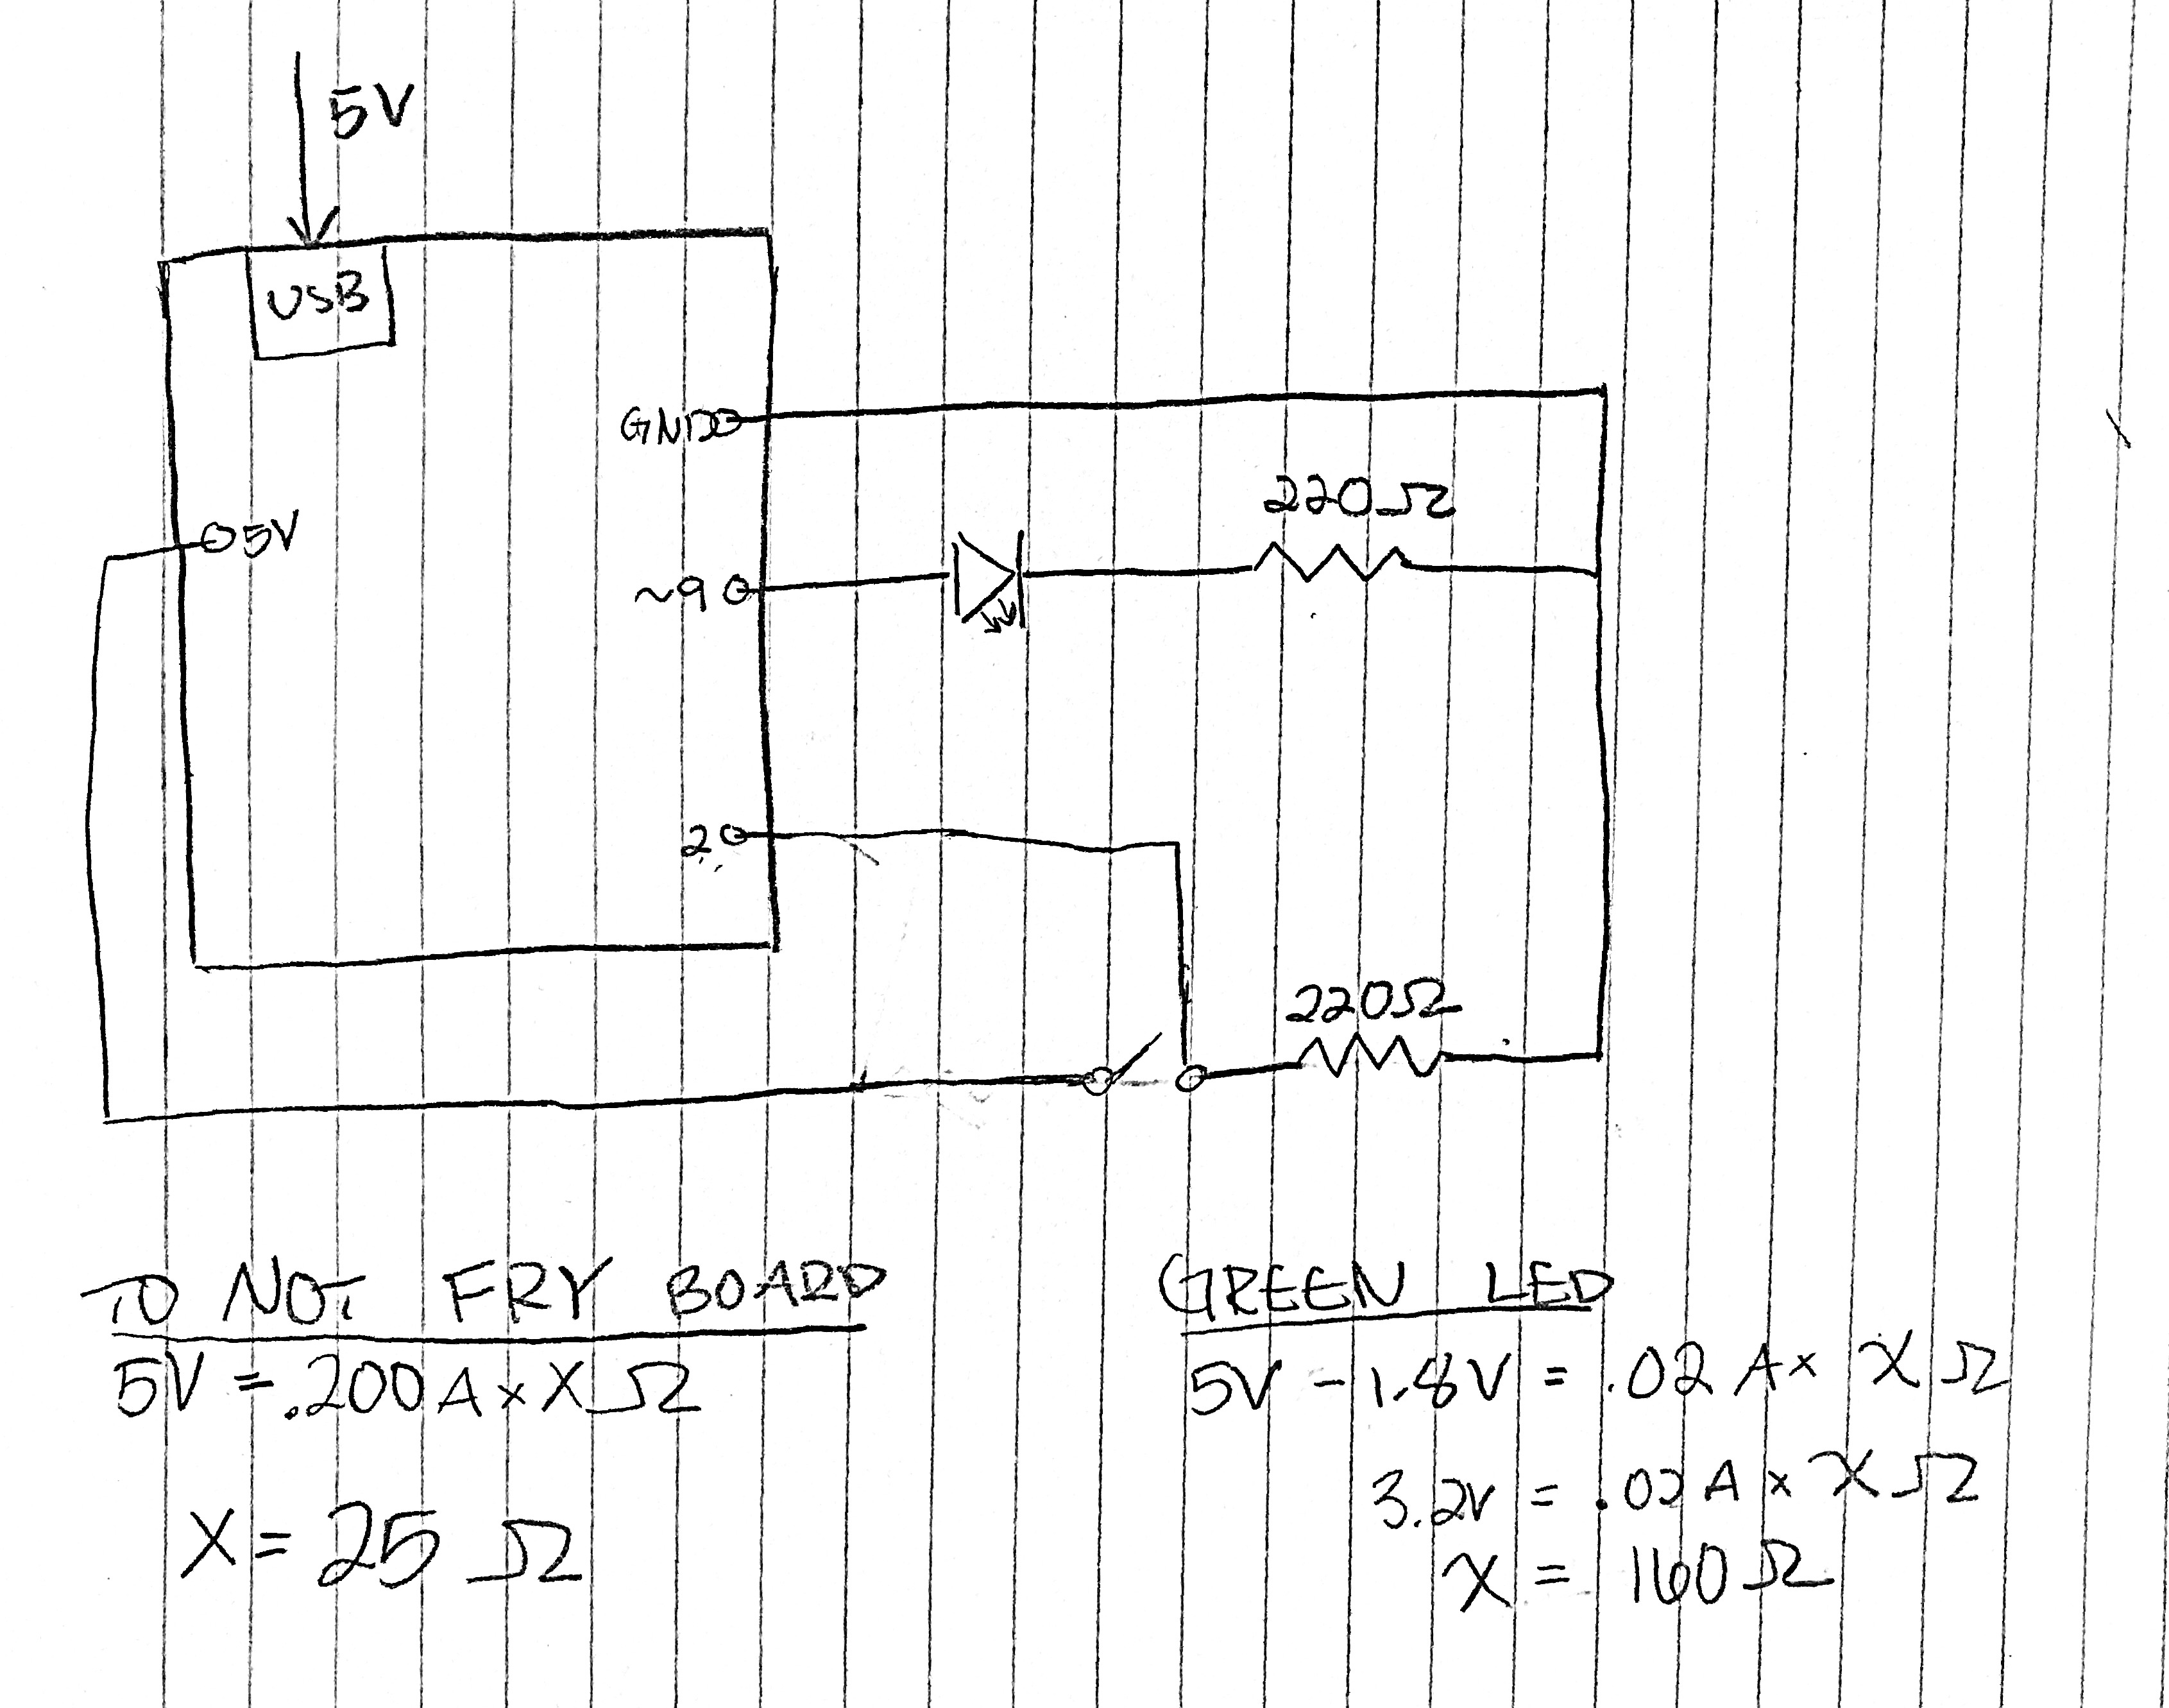 5V
USB
GND
220Ω
5V
~9
2
220Ω
TO NOT FRY BOARD
5V = .200 A x X Ω
X = 25 Ω
GREEN LED
5V - 1.8V = .02 A x X Ω
3.2V = .02 A x X Ω
X = 160 Ω